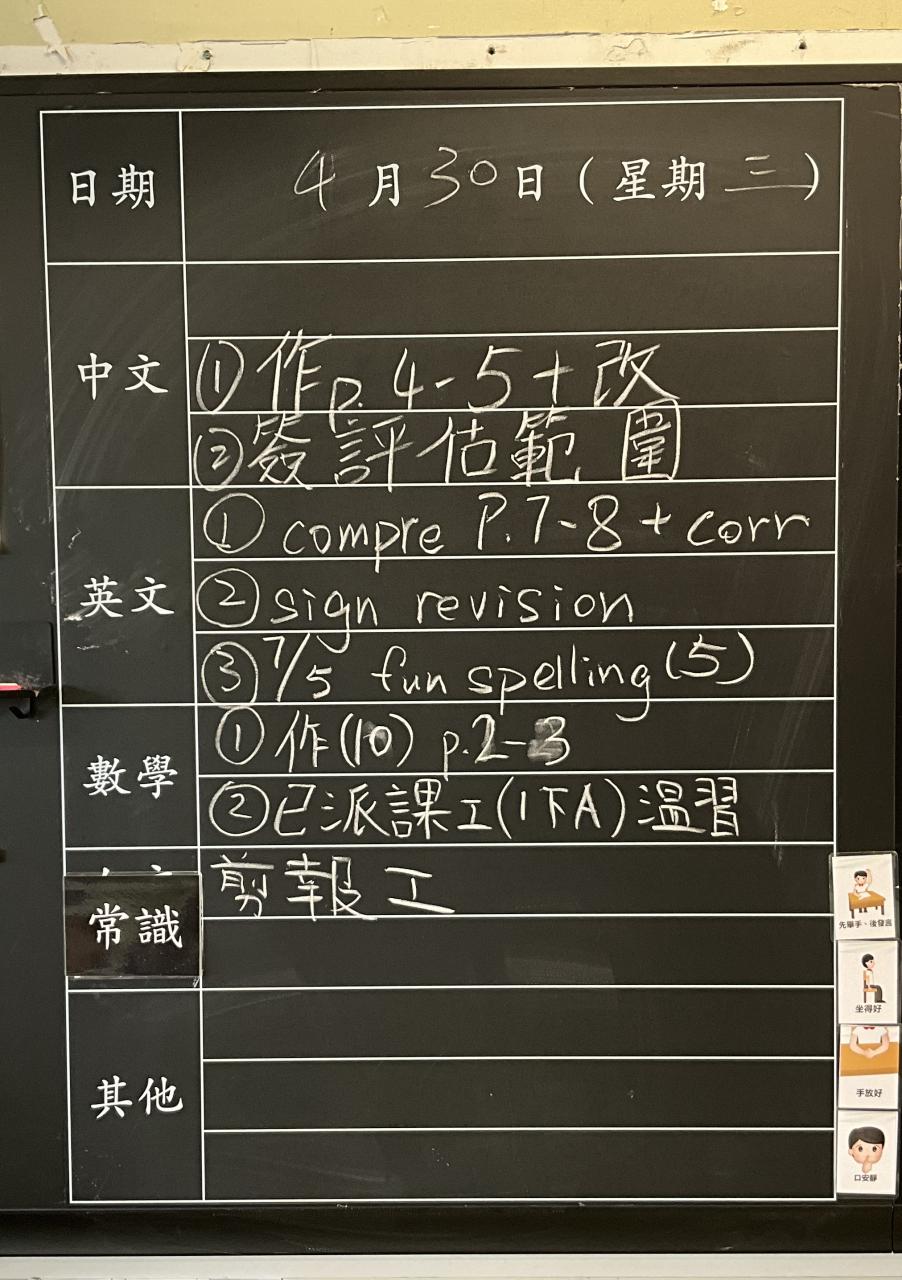 日期 4月30日(星期三)
中文
①作p.4-5+改
②簽評估範圍
英文
① compre P.7-8 + corr
② sign revision
③ 7/5 fun spelling (5)
數學
①作(10) p.2-3
②已派課工(1下A)溫習
常識
剪報工
其他
先舉手、後發言
坐得好
手放好
口安靜